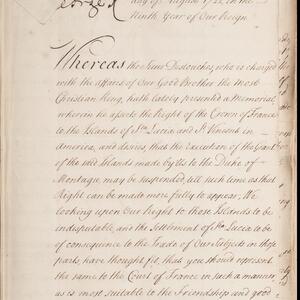 George R
day of August 1722, in the
Ninth Year of Our Reign
Whereas the Sieur Destouches, who is charged
with the affairs of Our Good Brother the most
Christian King, hath lately presented a Memorial,
wherein he asserts the Right of the Crown of France
to the Islands of Sta. Lucia and St. Vincent in
America, and desires that the Execution of the Grant
of the said Islands made by Us to the Duke of
Montagu, may be suspended, till such time as that
Right can be made more fully to appear; We
looking upon Our Right to those Islands to be
indisputable, and the Settlement of Sta. Lucia to be
of consequence to the Trade of Our Subjects in those
parts, have thought fit, that you should represent
the same to the Court of France in such a manner,
as is most suitable to the Friendship and good